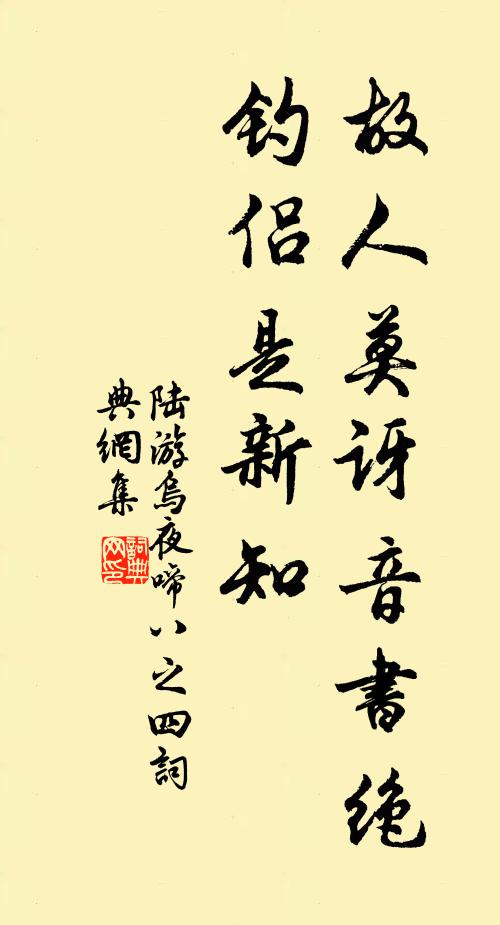 故人莫讶音書绝
钓侣是新知
陆游烏夜啼八之四詞
典網集
詞典网印